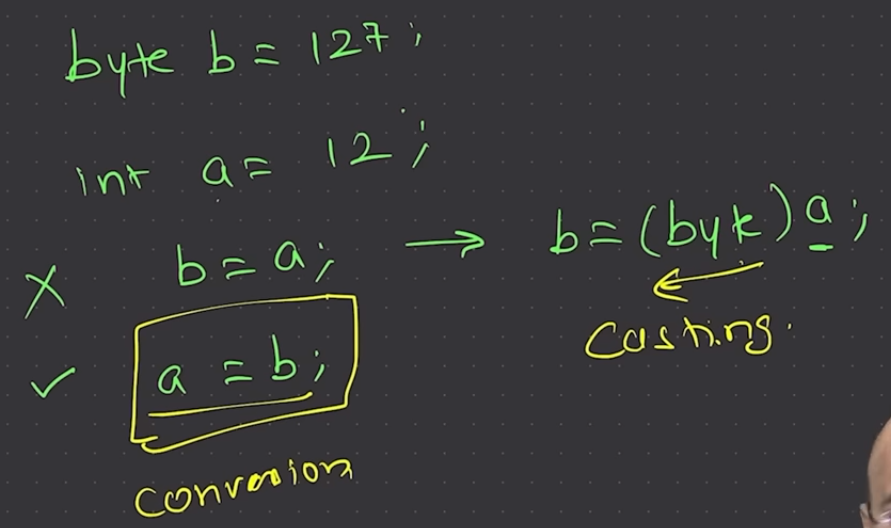 byte b = 127;
int a = 12;
X b = a; → b = (byte) a;
Casting.
✓ a = b;
Conversion